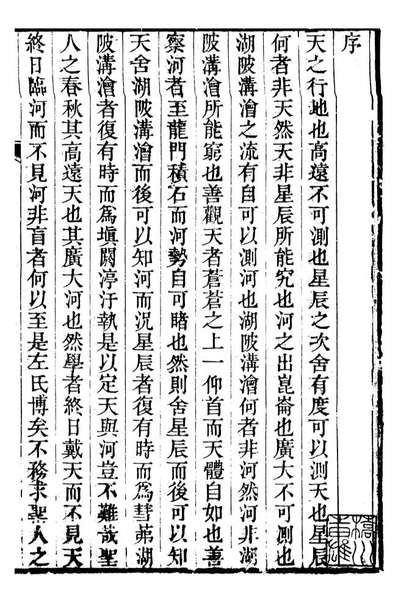 序
天之行地也高遠不可測也星辰之次舍有度可以測天也星辰
何者非天然天非星辰所能究也河之出崑崙也廣大不可測也
湖陂溝澮之流有自可以測河也湖陂溝澮何者非河然河非湖
陂溝澮所能窮也善觀天者蒼蒼之上一仰首而天體自如也善
察河者至龍門積石而河勢自可睹也然則舍星辰而後可以知
天舍湖陂溝澮而後可以知河而况星辰者復有時而爲彗茀湖
陂溝澮者復有時而爲塡閼渟汙執是以定天與河豈不難哉聖
人之春秋其高遠天也其廣大河也然學者終日戴天而不見天
終日臨河而不見河非盲者何以至是左氏博矣不務求聖人之